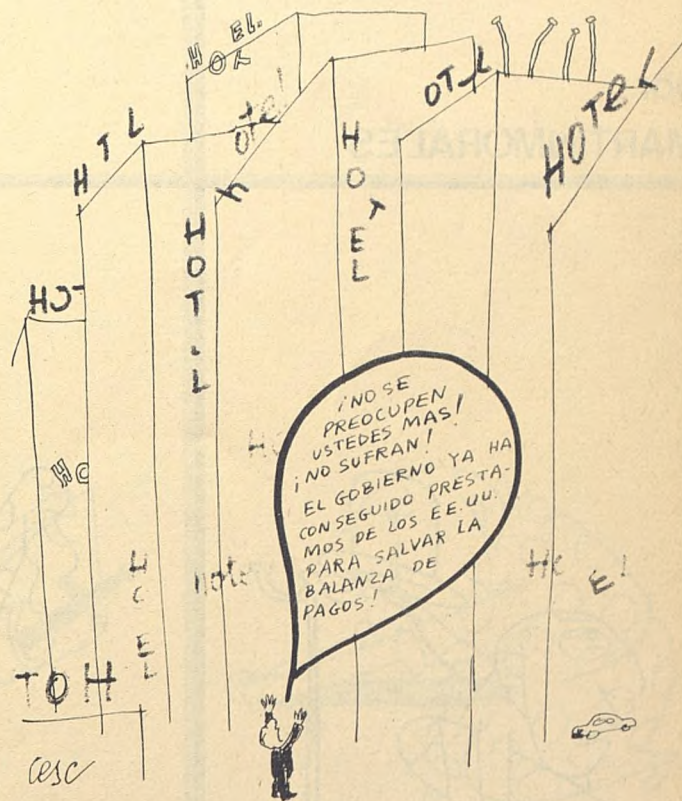 HOTEL.
OTEL
HOTEL
HTL
Hotel
HOTEL
HOT.L
HO
¡NO SE
PREOCUPEN
USTEDES MAS!
¡NO SUFRAN!
EL GOBIERNO YA HA
CONSEGUIDO PRESTA-
MOS DE LOS EE.UU.
PARA SALVAR LA
BALANZA DE
PAGOS!
HO
HO
HOTEL
Hotel
TOH
cesc